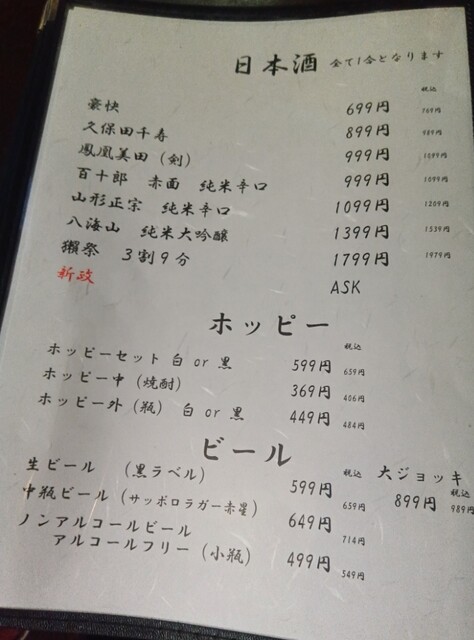 日本酒 全て1合となります
税込
豪快 699円 769円
久保田千寿 899円 989円
鳳凰美田（剣） 999円 1099円
百十郎 赤面 純米辛口 999円 1099円
山形正宗 純米辛口 1099円 1209円
八海山 純米大吟醸 1399円 1539円
獺祭 3割9分 1799円 1979円
新政 ASK
ホッピー
税込
ホッピーセット 白 or 黒 599円 659円
ホッピー中（焼酎） 369円 406円
ホッピー外（瓶） 白 or 黒 449円 484円
ビール
税込 大ジョッキ
生ビール （黒ラベル） 599円 659円 899円 税込 989円
中瓶ビール（サッポロラガー赤星） 649円 714円
ノンアルコールビール
アルコールフリー（小瓶） 499円 549円